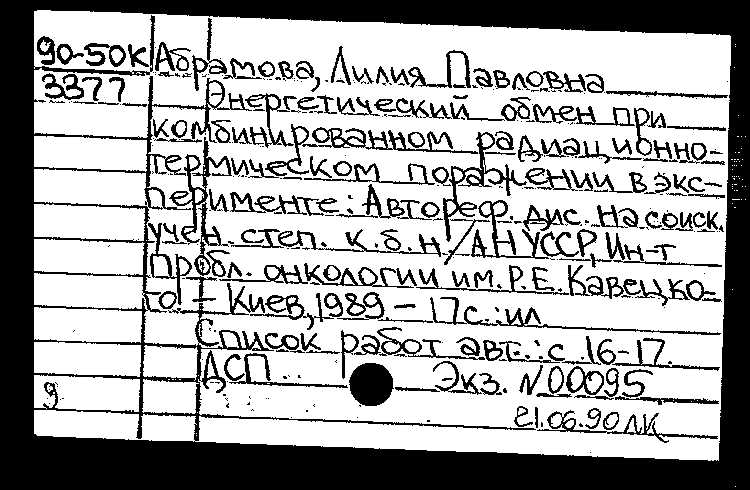 90-50К Абрамова, Лилия Павловна
3377 Энергетический обмен при
комбинированном радиационно-
термическом поражении в экс-
перименте: Автореф. дис. на соиск.
учен. степ. к.б.н./АН УССР, Ин-т
пробл. онкологии им. Р.Е. Кавецко-
го. – Киев, 1989. – 17с.:ил
Список работ авт.: с.16-17.
ДСП Экз. №00095
9
21.06.90 ЛК